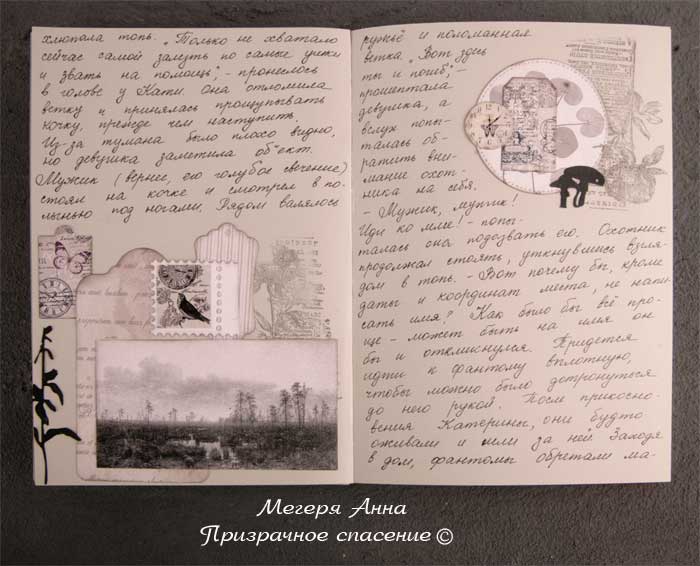 хлюпала топь. „Только не хватало
сейчас самой залезть по самые ушки
и звать на помощь", – пронеслось
в голове у Кати. Она отломила
ветку и принялась прощупывать
кочку, прежде чем наступить.
Из-за тумана было плохо видно,
но девушка заметила объект.
Мужик (вернее, его голубое свечение)
стоял на кочке и смотрел в по-
лынью под ногами. Рядом валялось
ружьё и поломанная
ветка. „Вот здесь
ты и погиб", –
прошептала
девушка, а
вслух попы-
талась об-
ратить вни-
мание охот-
ника на себя.
– Мужик, мужик!
Иди ко мне! – попы-
талась она подозвать его. Охотник
продолжал стоять, уткнувшись взгля-
дом в топь. – Вот почему бы, кроме
даты и координат места, не напи-
сать имя? Как было бы всё про-
ще – может быть на имя он
бы и откликнулся. Придется
идти к фантому вплотную,
чтобы можно было дотронуться
до него рукой. После прикосно-
вения Катерины, они будто
оживали и шли за ней. Заходя
в дом, фантомы обретали ма-
Мегеря Анна
Призрачное спасение ©